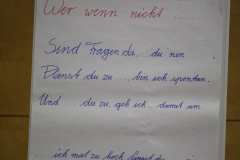 Wer wenn nicht .....
Sind Fragen da, ... du nen ...
Planst du zu ..., bin ich spontan.
Und .... du zu, geh ich damit um
... ich mal zu hoch